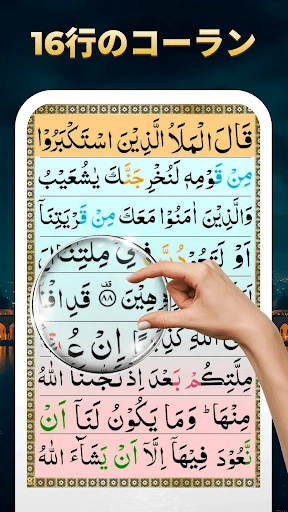 16行のコーラン
قَالَ الْمَلَاُ الَّذِيْنَ اسْتَكْبَرُوْا
مِنْ قَوْمِهٖ لَنُخْرِجَنَّكَ يٰشُعَيْبُ
وَالَّذِيْنَ اٰمَنُوْا مَعَكَ مِنْ قَرْيَتِنَاۤ
اَوْ لَتَعُوْدُنَّ فِيْ مِلَّتِنَا
۸۸
اللّٰهِ كَذِبًا اِنْ
مِلَّتِكُمْ بَعْدَ اِذْ نَجّٰىنَا اللّٰهُ
مِنْهَا ؕ وَمَا يَكُوْنُ لَنَاۤ اَنْ
نَّعُوْدَ فِيْهَاۤ اِلَّاۤ اَنْ يَّشَآءَ اللّٰهُ